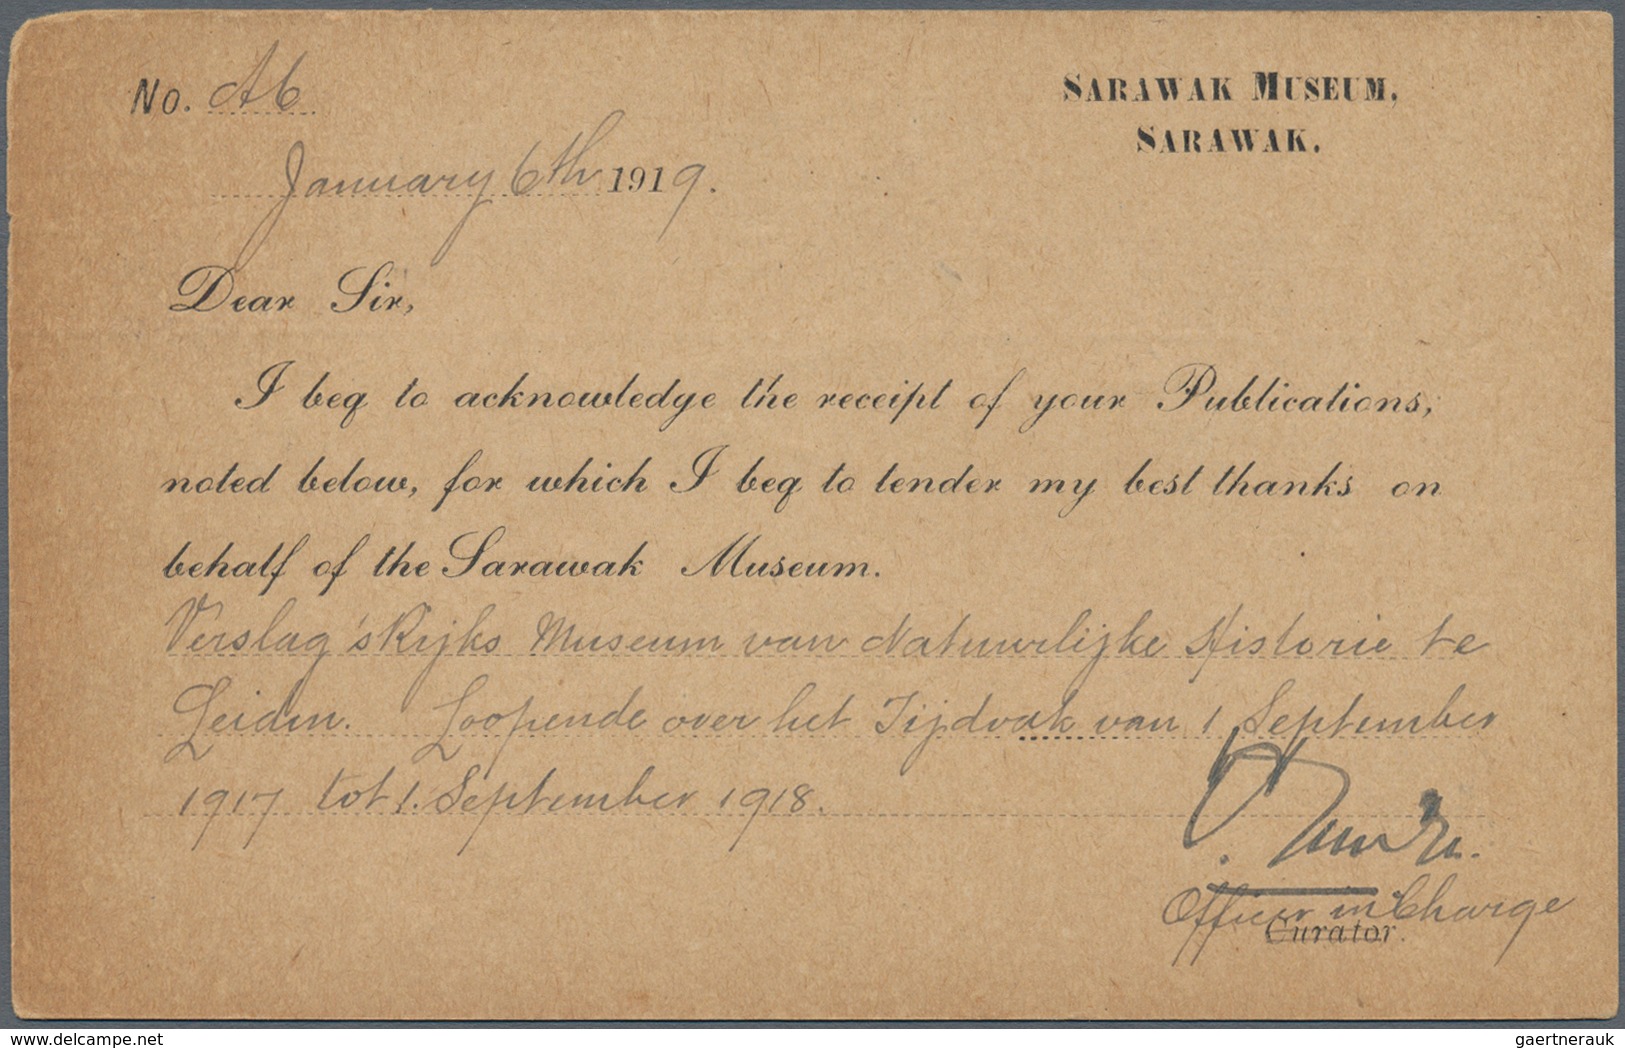 No. A6
SARAWAK MUSEUM,
SARAWAK.
January 6th 1919.
Dear Sir,
I beg to acknowledge the receipt of your Publications,
noted below, for which I beg to tender my best thanks on
behalf of the Sarawak Museum.
Verslag 's Rijks Museum van Natuurlijke Historie te
Leiden. Loopende over het Tijdvak van 1 September
1917 tot 1. September 1918.
Officer in Charge
Curator.
delcampe.net
gaertnerauk